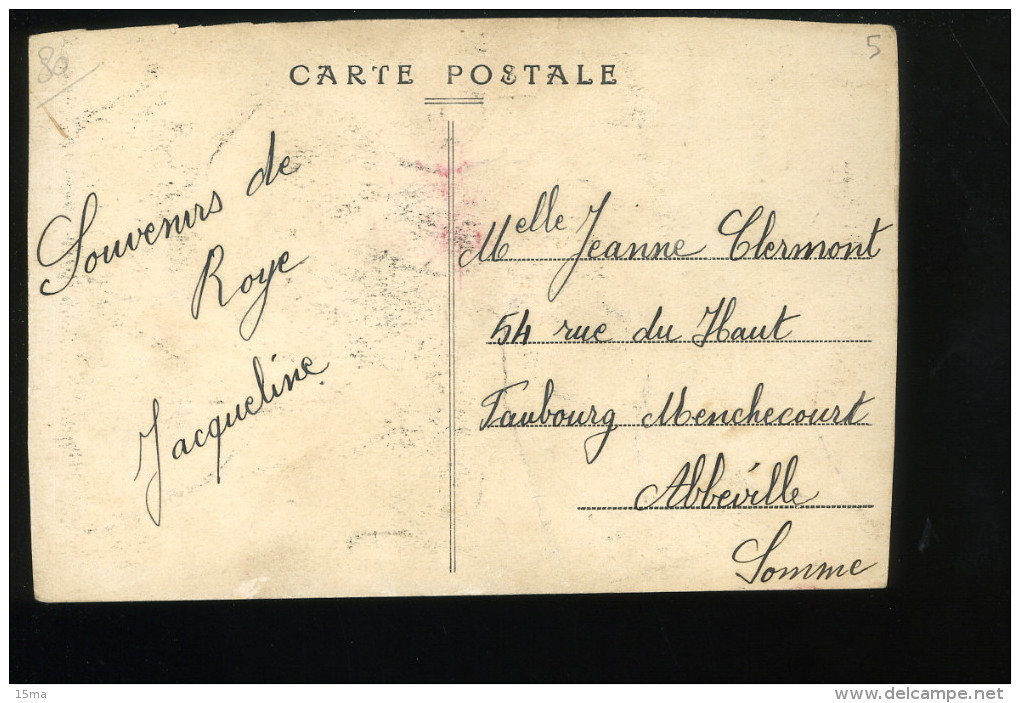 80
5
CARTE POSTALE
Souvenirs de
Roye
Jacqueline
Melle Jeanne Clermont
54 rue du Haut
Faubourg Menchecourt
Abbéville
Somme
15ma
www.delcampe.net